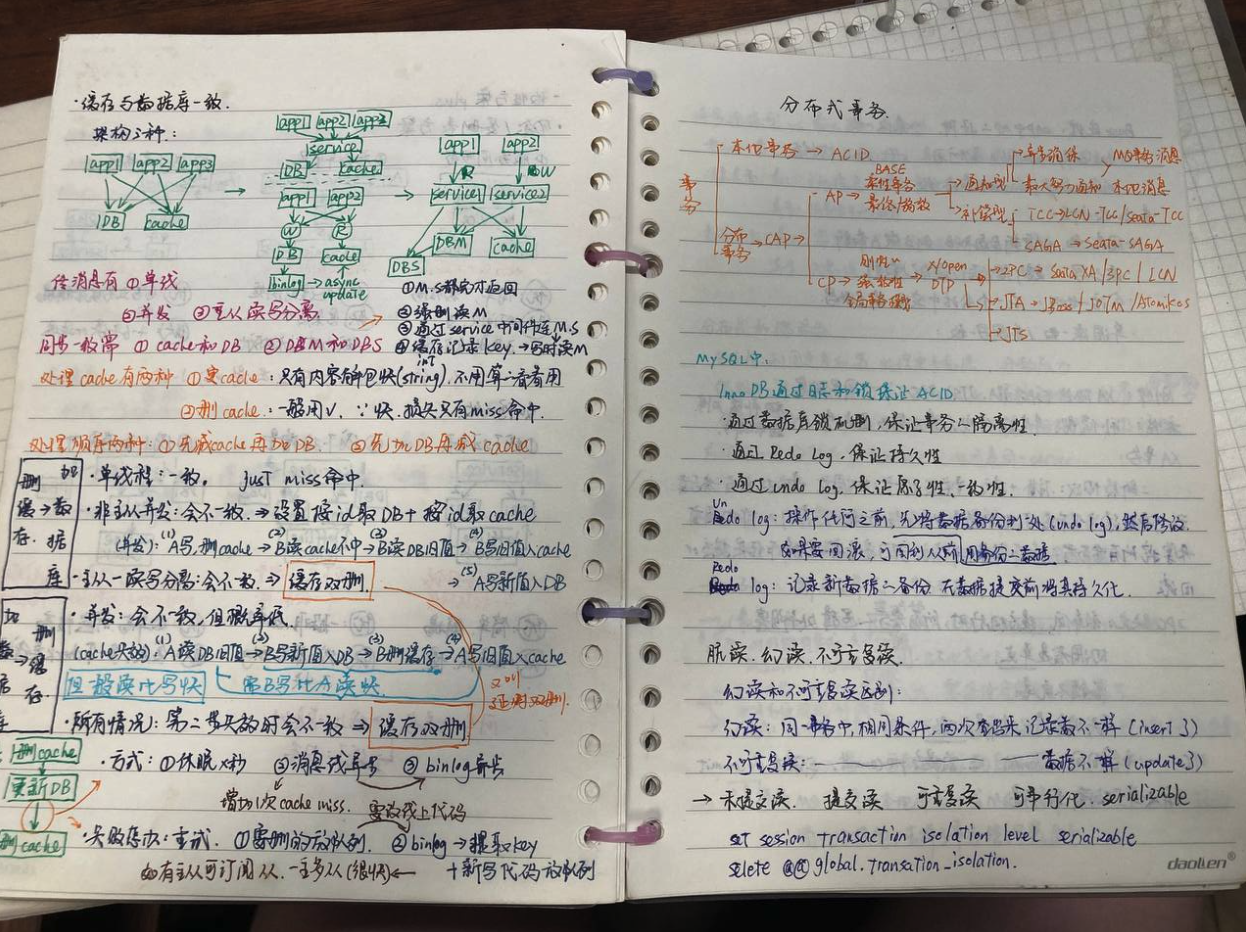 ·缓存与数据库一致.
架构三种:
app1 app2 app3
DB cache
app1 app2 app3
service
DB cache
app1 app2
W R
DB cache
binlog → async update
app1 app2
R W
service1 service2
DBM cache
DBS
①M.S都好才返回
②强制读M
③通过service中间件连M.S
④缓存记录key.→写时读M
①单线
②并发 ③主从读写分离
①cache和DB ②DBM和DBS
处理cache有两种 ①更cache:只有内容 int (string).不用算
②删cache.一般用√. ∵快.损失只有miss命中.
处理顺序两种:①先减cache再加DB. ②先加DB再减cache
删缓存.→加数据库
·单线程:一致. just miss命中.
·非主从并发:会不一致.⇒设置按id取DB+按id取cache
(并发): (1)A写,删cache→(2)B读cache不中→(3)B读DB旧值→(4)B写旧值入cache
→(5)A写新值入DB
·主从一读写分离:会不一致.⇒缓存双删
加数据库→删缓存.
·并发:会不一致,但概率低.
(cache失效): (1)A读DB旧值→(2)B写新值入DB→(3)B删缓存→(4)A写旧值入cache
但般读比写快 需B写比A读快.
又叫
延时双删.
·所有情况:第二步失败时会不一致⇒缓存双删
删cache
更新DB
删cache
·方式:①休眠x秒 ②消息 异步 ③binlog异步
增加1次cache miss. 要改线上代码
·失败怎办:重试. ①需删的放队列. ②binlog→提取key
+新写代码放队列
如有主从可订阅从.一主多从(很快)←
分布式事务.
事务
本地事务→ACID
分布事务→CAP→
AP→BASE 柔性事务 最终一致
→通知型→异步消息 MQ事务消息
最大努力通知 本地消息
→补偿型 TCC→LCN-TCC/seata-TCC
SAGA→Seata-SAGA
CP→刚性 强一致性 全局事务
X/open DTP
→2PC→Seata XA/3PC/LCN
→JTA→JBoss/JOTM/Atomikos
→JTS
MySQL中.
InnoDB通过日志和锁保证ACID
·通过数据库锁机制,保证事务之隔离性.
·通过Redo Log.保证持久性
·通过undo log.保证原子性,一致性.
Undo log:操作任何之前,先将数据备份到 处(undo log),然后修改
如果要回滚,可用备份之数据
Redo log:记录新数据之备份 在数据提交前将其持久化.
脏读.幻读.不可重复读.
幻读和不可重复读区别:
幻读:同一事务中,相同条件,两次查出来记录数不一样(insert了)
不可重复读: —— —— 数据不一样(update了)
→未提交读. 提交读 可重复读 可串行化. serializable
set session transaction isolation level serializable
selete @@global.transation_isolation.
daolien®